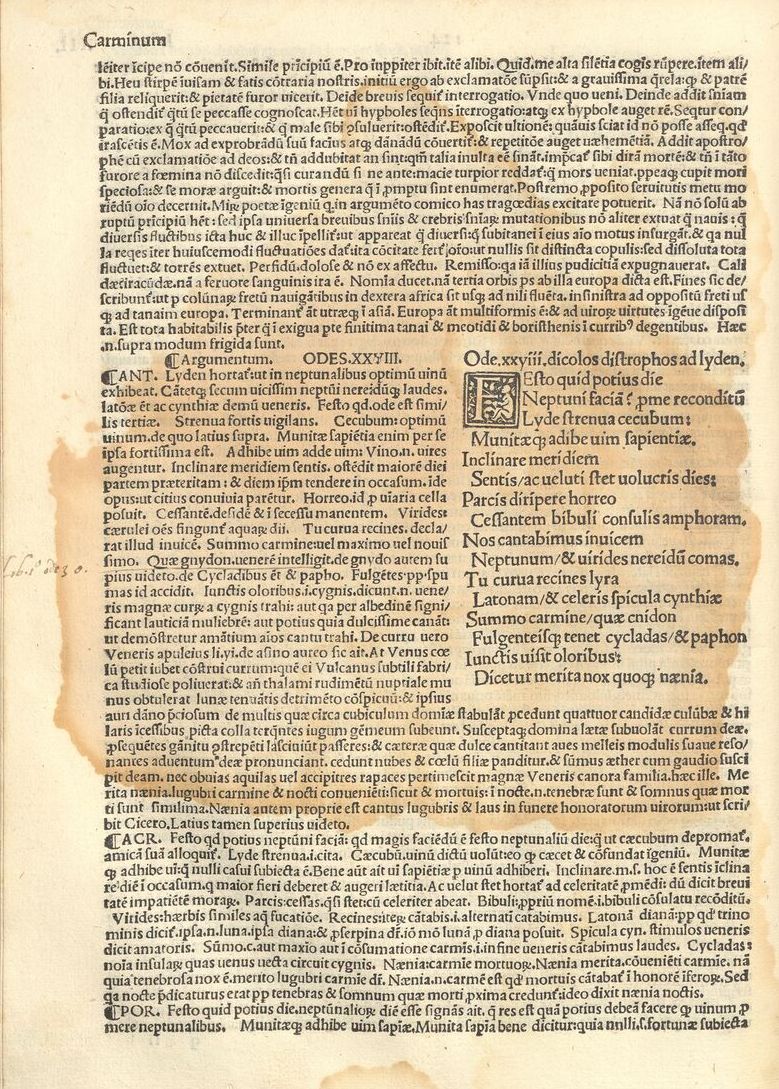 Carminum
lēiter īcipe nō cōvenit. Simile prīcipiū ē. Pro iuppiter ibit. itē alibi. Quid me alta silētia cogis rūpere. item ali/
bi. Heu stirpē īuisam & fatis cōtraria nostris. initiū ergo ab exclamatōe sūpsit: & a grauissima q̄rela: & patrē
filia reliquerit: & pietatē furor uicerit. Deide brevis sequit̄ interrogatio. Vnde quo veni. Deinde addit sn̄iam
paratio. ex q̄ q̄tū peccauerit: & q̄ male sibi ꝯsuluerit: ostēdit. Exposcit ultionē: quāuis sciat id nō posse asseq. qd̓
furore a fœmina nō discedit: q̄si curandū si ne ante: macie turpior reddat̄: q̄ mors ueniat. ppeaq; cupit mori
speciosa: & se moræ arguit: & mortis genera q̄ ī promptu sint enumerat. Postremo proposito seruitutis metu mo
riēdū oīo decernit. Mire poetæ īgeniū q in argumēto comico has tragœdias excitare potuerit. Nā nō solū ab
ruptū prīcipiū hēt: sed ipsa universa brevibus sn̄iis & crebris sn̄iaꝝ mutationibus nō aliter extuat q̄ nauis: q̄
diversis fluctibus icta huc & illuc īpellit̄: ut appareat q̄ diversi: q̄ subitanei ī eius aīo motus insurgāt. & qa nul
fluctuet: & torrēs extuet. Perfidū. dolose & nō ex affectu. Remisso: qa iā illius pudicitiā expugnauerat. Cali
dæ: iracūdæ. nā a feruore sanguinis ira ē. Nomīa ducet. nā tertia orbis ps ab illa europa dicta est. Fines sic de/
scribunt̄: ut p colūnaꝝ fretū nauigātibus in dextera africa sit usq; ad nili fluēta. in sinistra ad oppositū freti us
q; ad tanaim europa. Terminant̄ āt utræq; ī asiā. Europa āt multiformis ē: & ad uiroꝝ uirtutes īgēue disposi
ta. Est tota habitabilis p̄ter q̄ ī exigua pte finitima tanai & meotidi & boristhenis ī curribꝰ degentibus. Hæc
.n. supra modum frigida sunt.
¶Argumentum. ODES. XXVIII.
¶ANT. Lyden hortat̄: ut in neptunalibus optimū uinū
exhibeat. Cātetq; secum uicissim neptūi nereidūq; laudes.
latōæ ēt ac cynthiæ demū ueneris. Festo qd. ode est simi/
lis tertiæ. Strenua fortis uigilans. Cecubum: optimū
uinum. de quo latius supra. Munitæ sapiētia enim per se
ipsa fortissima est. Adhibe uim adde uim: Vino. n. uires
augentur. Inclinare meridiem sentis. ostēdit maiorē diei
partem præteritam: & diem ip̄m tendere in occasum. ide
opus: ut citius conuiuia parētur. Horreo. id. p uiaria cella
posuit. Cessantē. desidē & ī secessu manentem. Virides:
cærulei oēs fingunt̄ aquaꝝ dii. Tu curua recines. decla/
rat illud inuicē. Summo carmine: uel maximo uel nouis
simo. Quæ gnydon. uenerē intelligit. de gnydo autem su
pius uideto. de Cycladibus ēt & papho. Fulgētes: pp spu
mas id accidit. Iunctis oloribus. i. cygnis. dicunt. n. uene/
ris magnæ curꝝ a cygnis trahi: aut qa per albedinē signi/
ficant lauticiā muliebrē: aut potius quia dulcissime canāt:
ut demōstretur amātium aīos cantu trahi. De curru uero
Veneris apuleius li. vi. de asino aureo sic ait. At Venus cœ
lū petit iubet cōstrui currum: quē ei Vulcanus subtili fabri/
ca studiose poliuerat: & añ thalami rudimētū nuptiale mu
nus obtulerat lunæ tenuātis detrimēto cōspicuū: & ipsius
auri dāno p̄ciosum de multis quæ circa cubiculum domīæ stabulāt procedunt quattuor candidæ culūbæ & hi
laris īcessibus picta colla terq̄ntes iugum gēmeum subeunt. Susceptaq; domina lætæ subuolāt currum deæ.
ꝓsequētes gānitu ꝯstrepēti lasciuiūt passeres: & cæteræ quæ dulce cantitant aues melleis modulis suaue reso/
nantes aduentum deæ pronunciant. cedunt nubes & cœlū filiæ panditur. & sūmus æther cum gaudio susci
pit deam. nec obuias aquilas uel accipitres rapaces pertimescit magnæ Veneris canora familia. hæc ille. Me
rita nænia. lugubri carmine & nocti conueniēti: sicut & mortuis: ī nocte. n. tenebræ sunt & somnus quæ mor
ti sunt similima. Nænia autem proprie est cantus lugubris & laus in funere honoratorum uirorum: ut scri/
bit Cicero. Latius tamen superius uideto.
Ode. xxviii. dicolos distrophos ad lyden.
FEsto quid potius die
Neptuni faciā? prome reconditū
Lyde strenua cecubum:
Munitæq; adibe uim sapientiæ.
Inclinare meridiem
Sentis/ ac ueluti stet uolucris dies:
Parcis diripere horreo
Cessantem bibuli consulis amphoram.
Nos cantabimus inuicem
Neptunum/ & uirides nereidū comas.
Tu curua recines lyra
Latonam/ & celeris spicula cynthiæ
Summo carmine/ quæ cnidon
Fulgenteisq; tenet cycladas/ & paphon
Iunctis uisit oloribus:
Dicetur merita nox quoq; nænia.
¶ACR. Festo qd potius neptūni faciā: qd magis faciēdū ē festo neptunaliū die: q̄ ut cæcubum depromat̄.
amicā suā alloquit̄. Lyde strenua. i. cita. Cæcubū. uinū dictū uolūt: eo q; cæcet & cōfundat īgeniū. Munitæ
q; adhibe uī: q̄ nulli casui subiecta ē. Bene aūt ait uī sapiētiæ p uinū adhiberi. Inclinare. m. s. hoc ē sentis īclina
re diē ī occasum. q maior fieri deberet & augeri lætitia. Ac uelut stet hortat̄ ad celeritatē ꝓmēdi: dū dicit breui
tatē impatiētē moræ. Parcis: cessas. q̄si stet: cū celeriter abeat. Bibuli: ꝓpriū nomē. i. bibuli cōsulatu recōditū.
Virides: hærbis similes aq̄ fucatiōe. Recines: iteꝝ cātabis. i. alternatī catabimus. Latonā dianā: pp qd̓ trino
minis dicit̄. ipsa. n. luna. ipsa diana: & proserpina dr̄. iō mō lunā p diana posuit. Spicula cyn. stimulos ueneris
dicit amatoris. Sūmo. c. aut maxīo aut ī cōsumatione carmīs. i. in fine ueneris cātabimus laudes. Cycladas:
noīa insulaꝝ quas uenus uecta circuit cygnis. Nænia: carmīe mortuoꝝ. Nænia merita. cōueniēti carmīe. nā
quia tenebrosa nox ē. merito lugubri carmīe dr̄. Nænia. n. carmē est qd̓ mortuis cātabat̄ ī honorē īferoꝝ. Sed
qa nocte p̄dicaturus erat pp tenebras & somnum quæ morti ꝓxima credunt̄. ideo dixit nænia noctis.
¶POR. Festo quid potius die. neptūnalioꝝ diē esse signās ait. q̄ res est quā potius debeā facere q̄ uinum p
mere neptunalibus. Munitæq; adhibe uim sapīæ. Munita sapīa bene dicitur: quia nulli. s. fortunæ subiecta